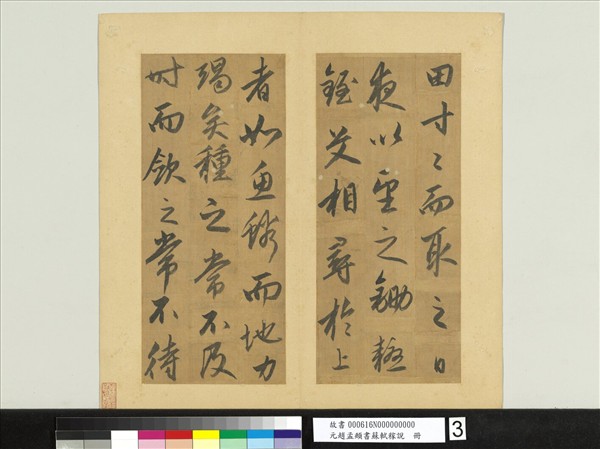 田寸〻而取之日
夜以望之鋤耰
銍艾相尋於上
者如魚鱗而地力
竭矣種之常不及
時而歛之常不待
故書 000616N000000000
元趙孟頫書蘇軾稼說 冊
3